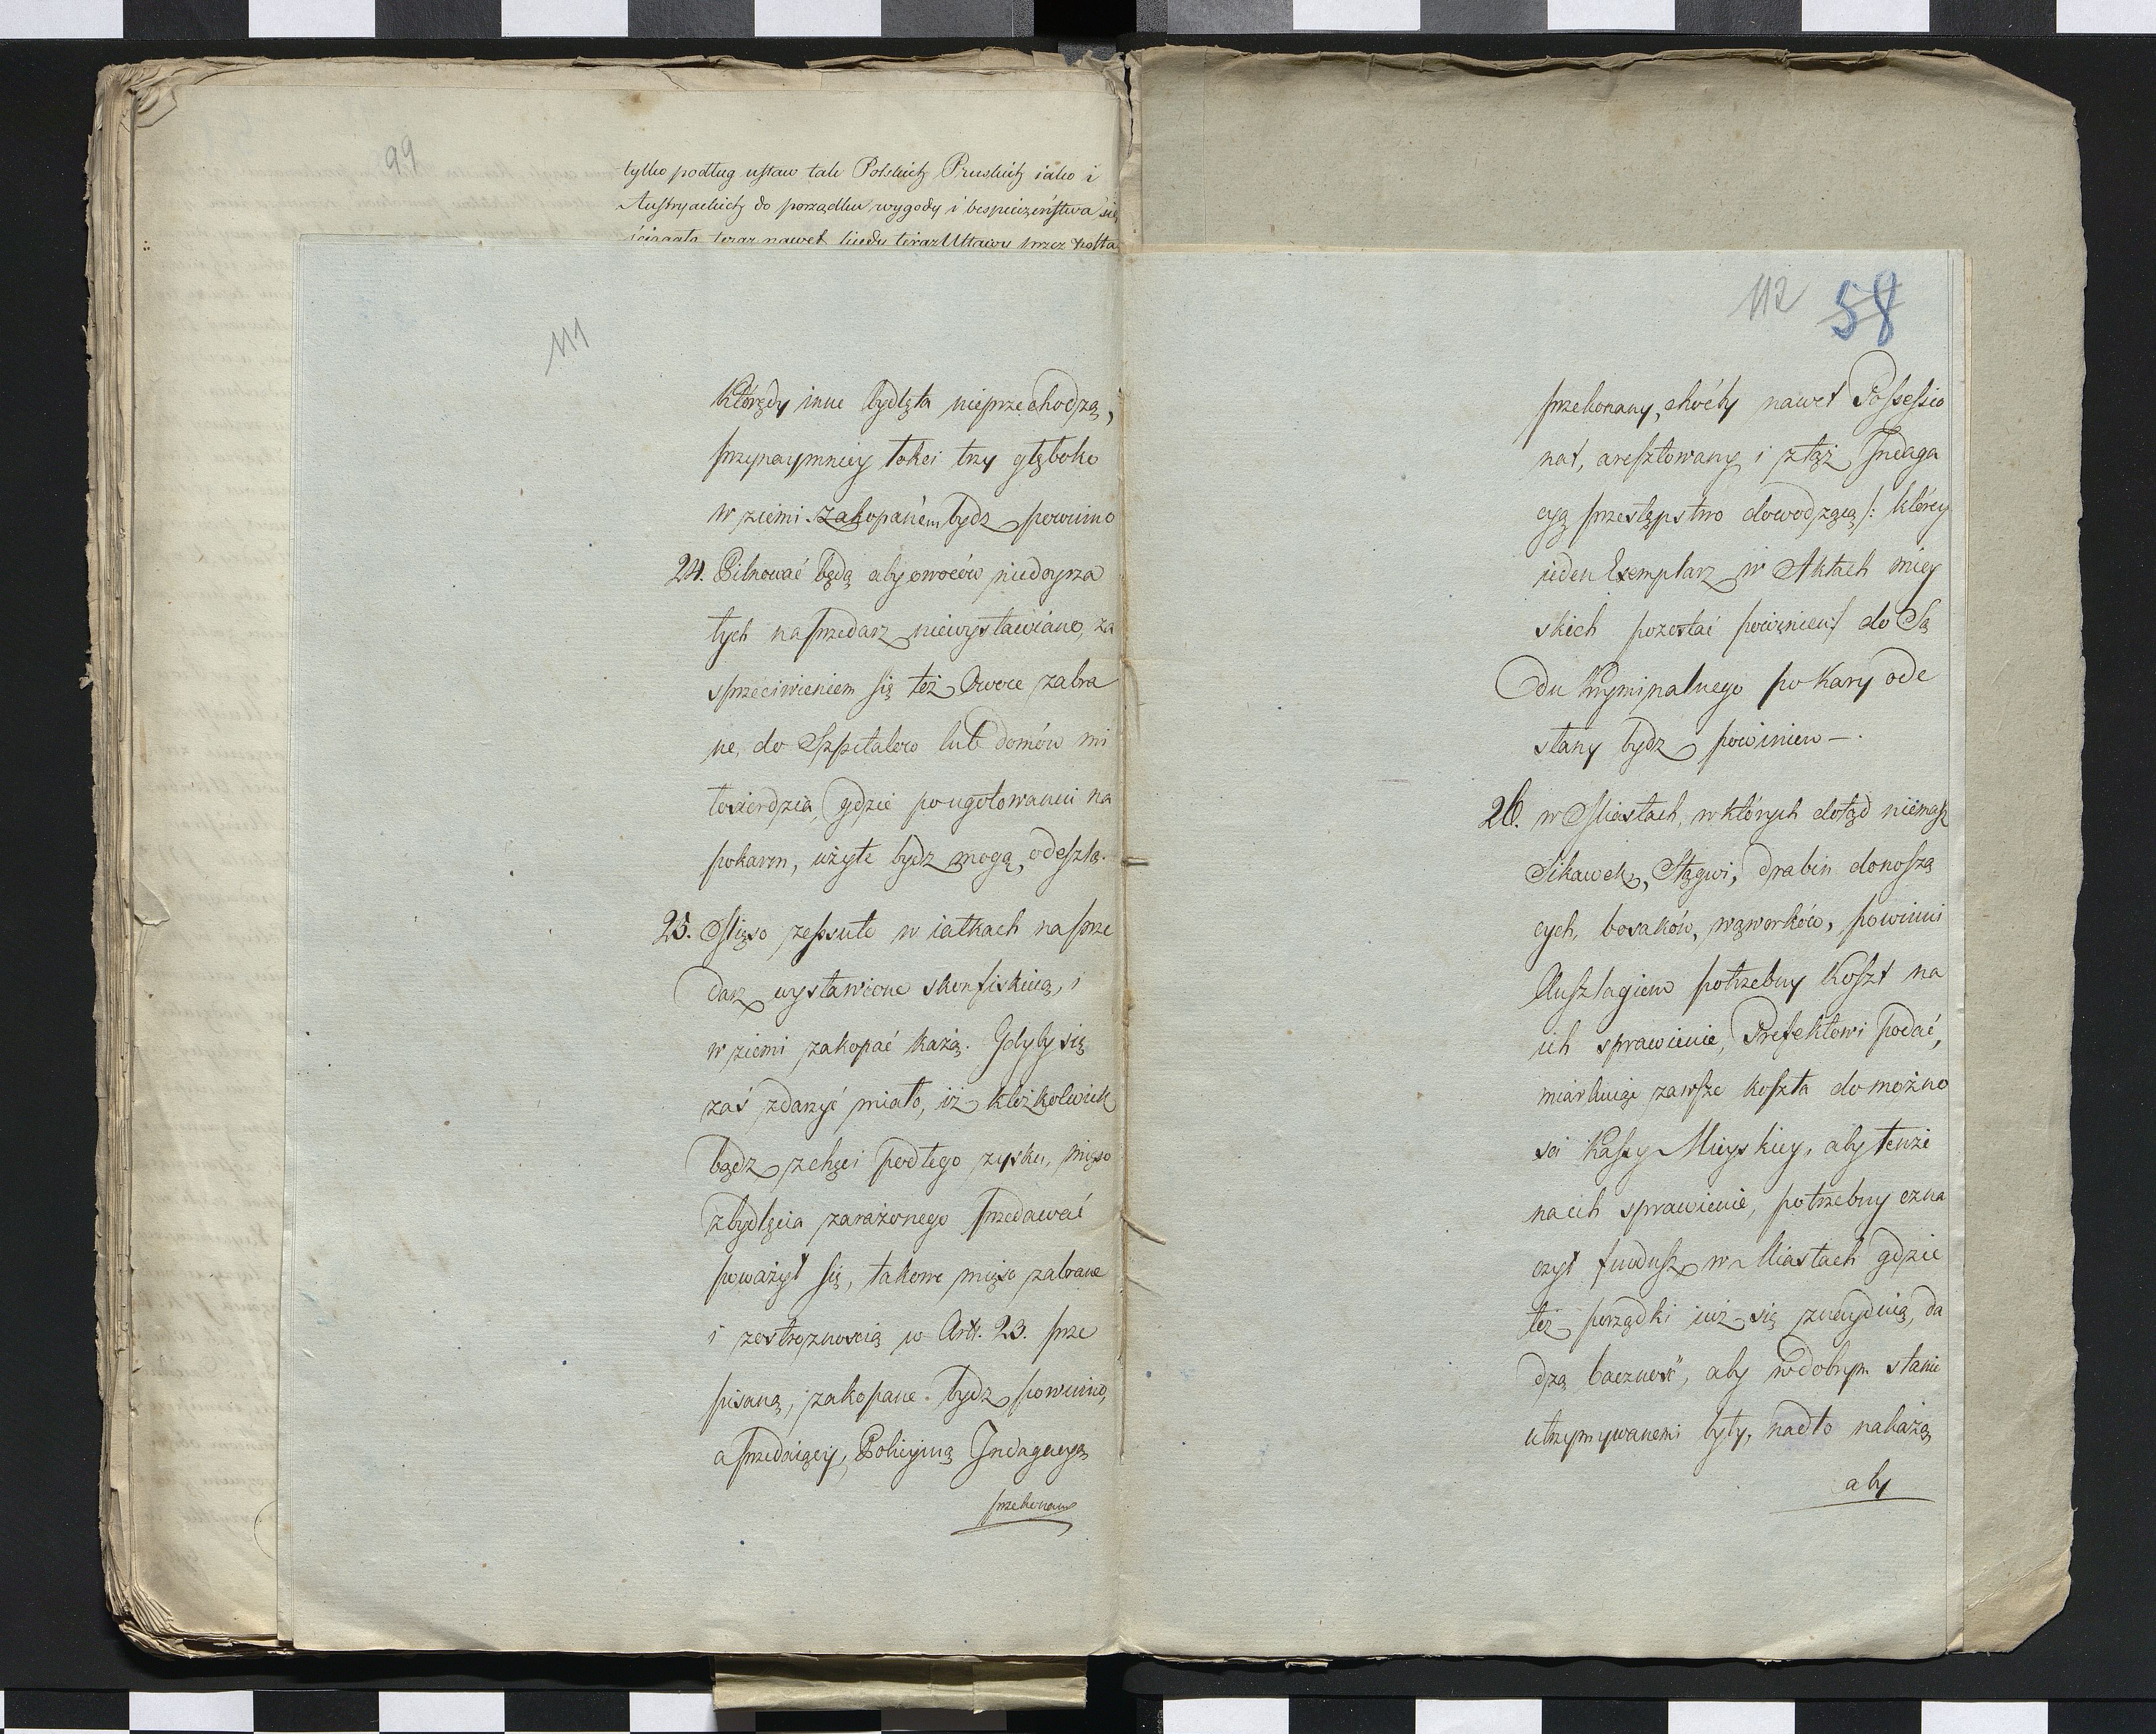 99
tylko podług ustaw tak Polskich Pruskich iako i
Austryackich do porządku wygody i bespieczeństwa się
ściągało teraz nawet kiedy teraz Ustawy przez
111
Którędy inne bydlęta nieprzechodzą,
przynaymniey łokci trzy głęboko
w ziemi zakopanem bydz powinno
24. Pilnować będą aby owoców niedoyrza
łych na przedarz niewystawiano, za
sprzeciwieniem się też Owoce zabra
ne, do Szpitalow lub domów mi
łosierdzia, gdzie po ugotowaniu na
pokarm, użyte bydz mogą, odeszlą.
25. Mięso zepsute w iatkach na prze
darz wystawione skonfiskuią, i
w ziemi zakopać każą. Gdyby się
zaś zdarzyć miało, iż ktożkolwiek
bądz z chęci podłego zysku, mięso
z bydlęcia zarażonego przedawać
poważył się, takowe mięso zabrane
i zostrożnością w Art. 23. prze
pisaną, zakopane bydz powinno,
a przedaiący, Policyiną Indagacyą
przekonany
112 58
przekonany, choćby nawet Possessio
nat, aresztowany i z tąż Indaga
cyą przestępstwo dowodzącą /: którey
ieden Exemplarz w Aktach miey
skich pozostać powinien :/ do Są
du Kryminalnego po karę ode
słany bydz powinien —.
26. w Miastach, w których dotąd niemasz
Sikawek, Stągwi, drabin donoszą
cych, bosaków, węworków, powinni
Anszlagiem potrzebny Koszt na
ich sprawienie, Prefektowi podać,
miarkuiąc zawsze koszta do możno
sci Kassy Mieyskiey, aby tenże
na ich sprawienie, potrzebny ozna
czył fundusz w Miastach gdzie
też porządki iuż się znayduią, da
dzą baczność, aby w dobrym stanie
utrzymywanemi były, nadto nakażą
aby